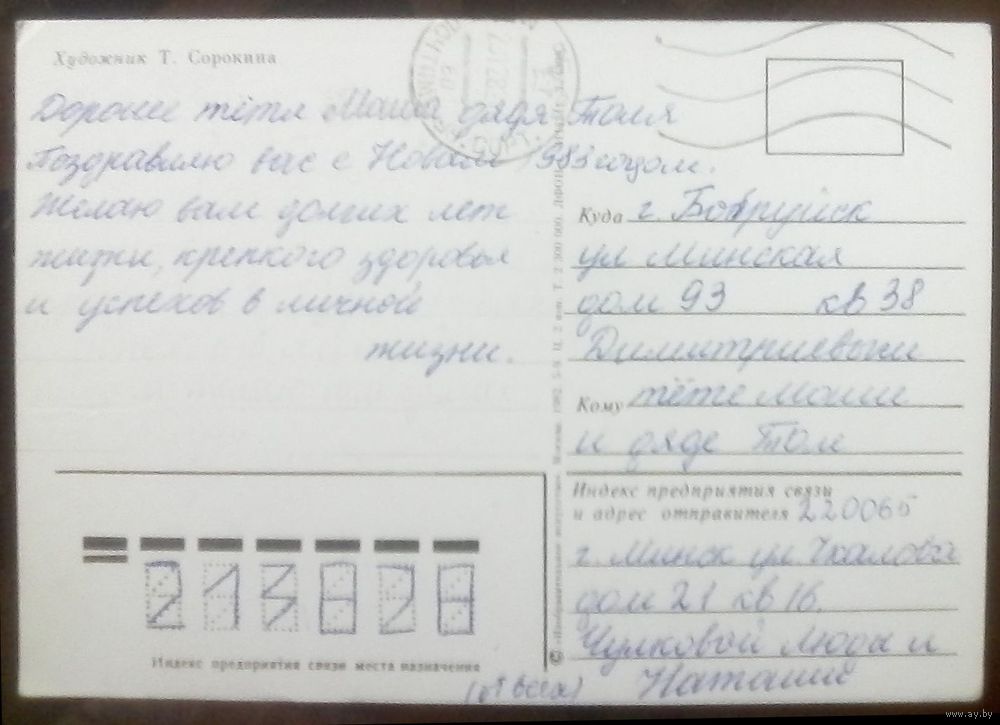 Художник Т. Сорокина
Дорогие тётя Маша дядя Толя
Поздравляю вас с Новым 1983 годом.
Желаю вам долгих лет
жизни, крепкого здоровья
и успехов в личной
жизни.
Куда г. Бобруйск
ул Минская
дом 93 кв 38
Кому тёте Маши
и дяде Толи
Индекс предприятия связи
и адрес отправителя 220065
г. Минск ул Чкалова
дом 21 кв 16.
Чулковой Люды и
Наташи
(от всех)
213828
Индекс предприятия связи места назначения
www.ay.by